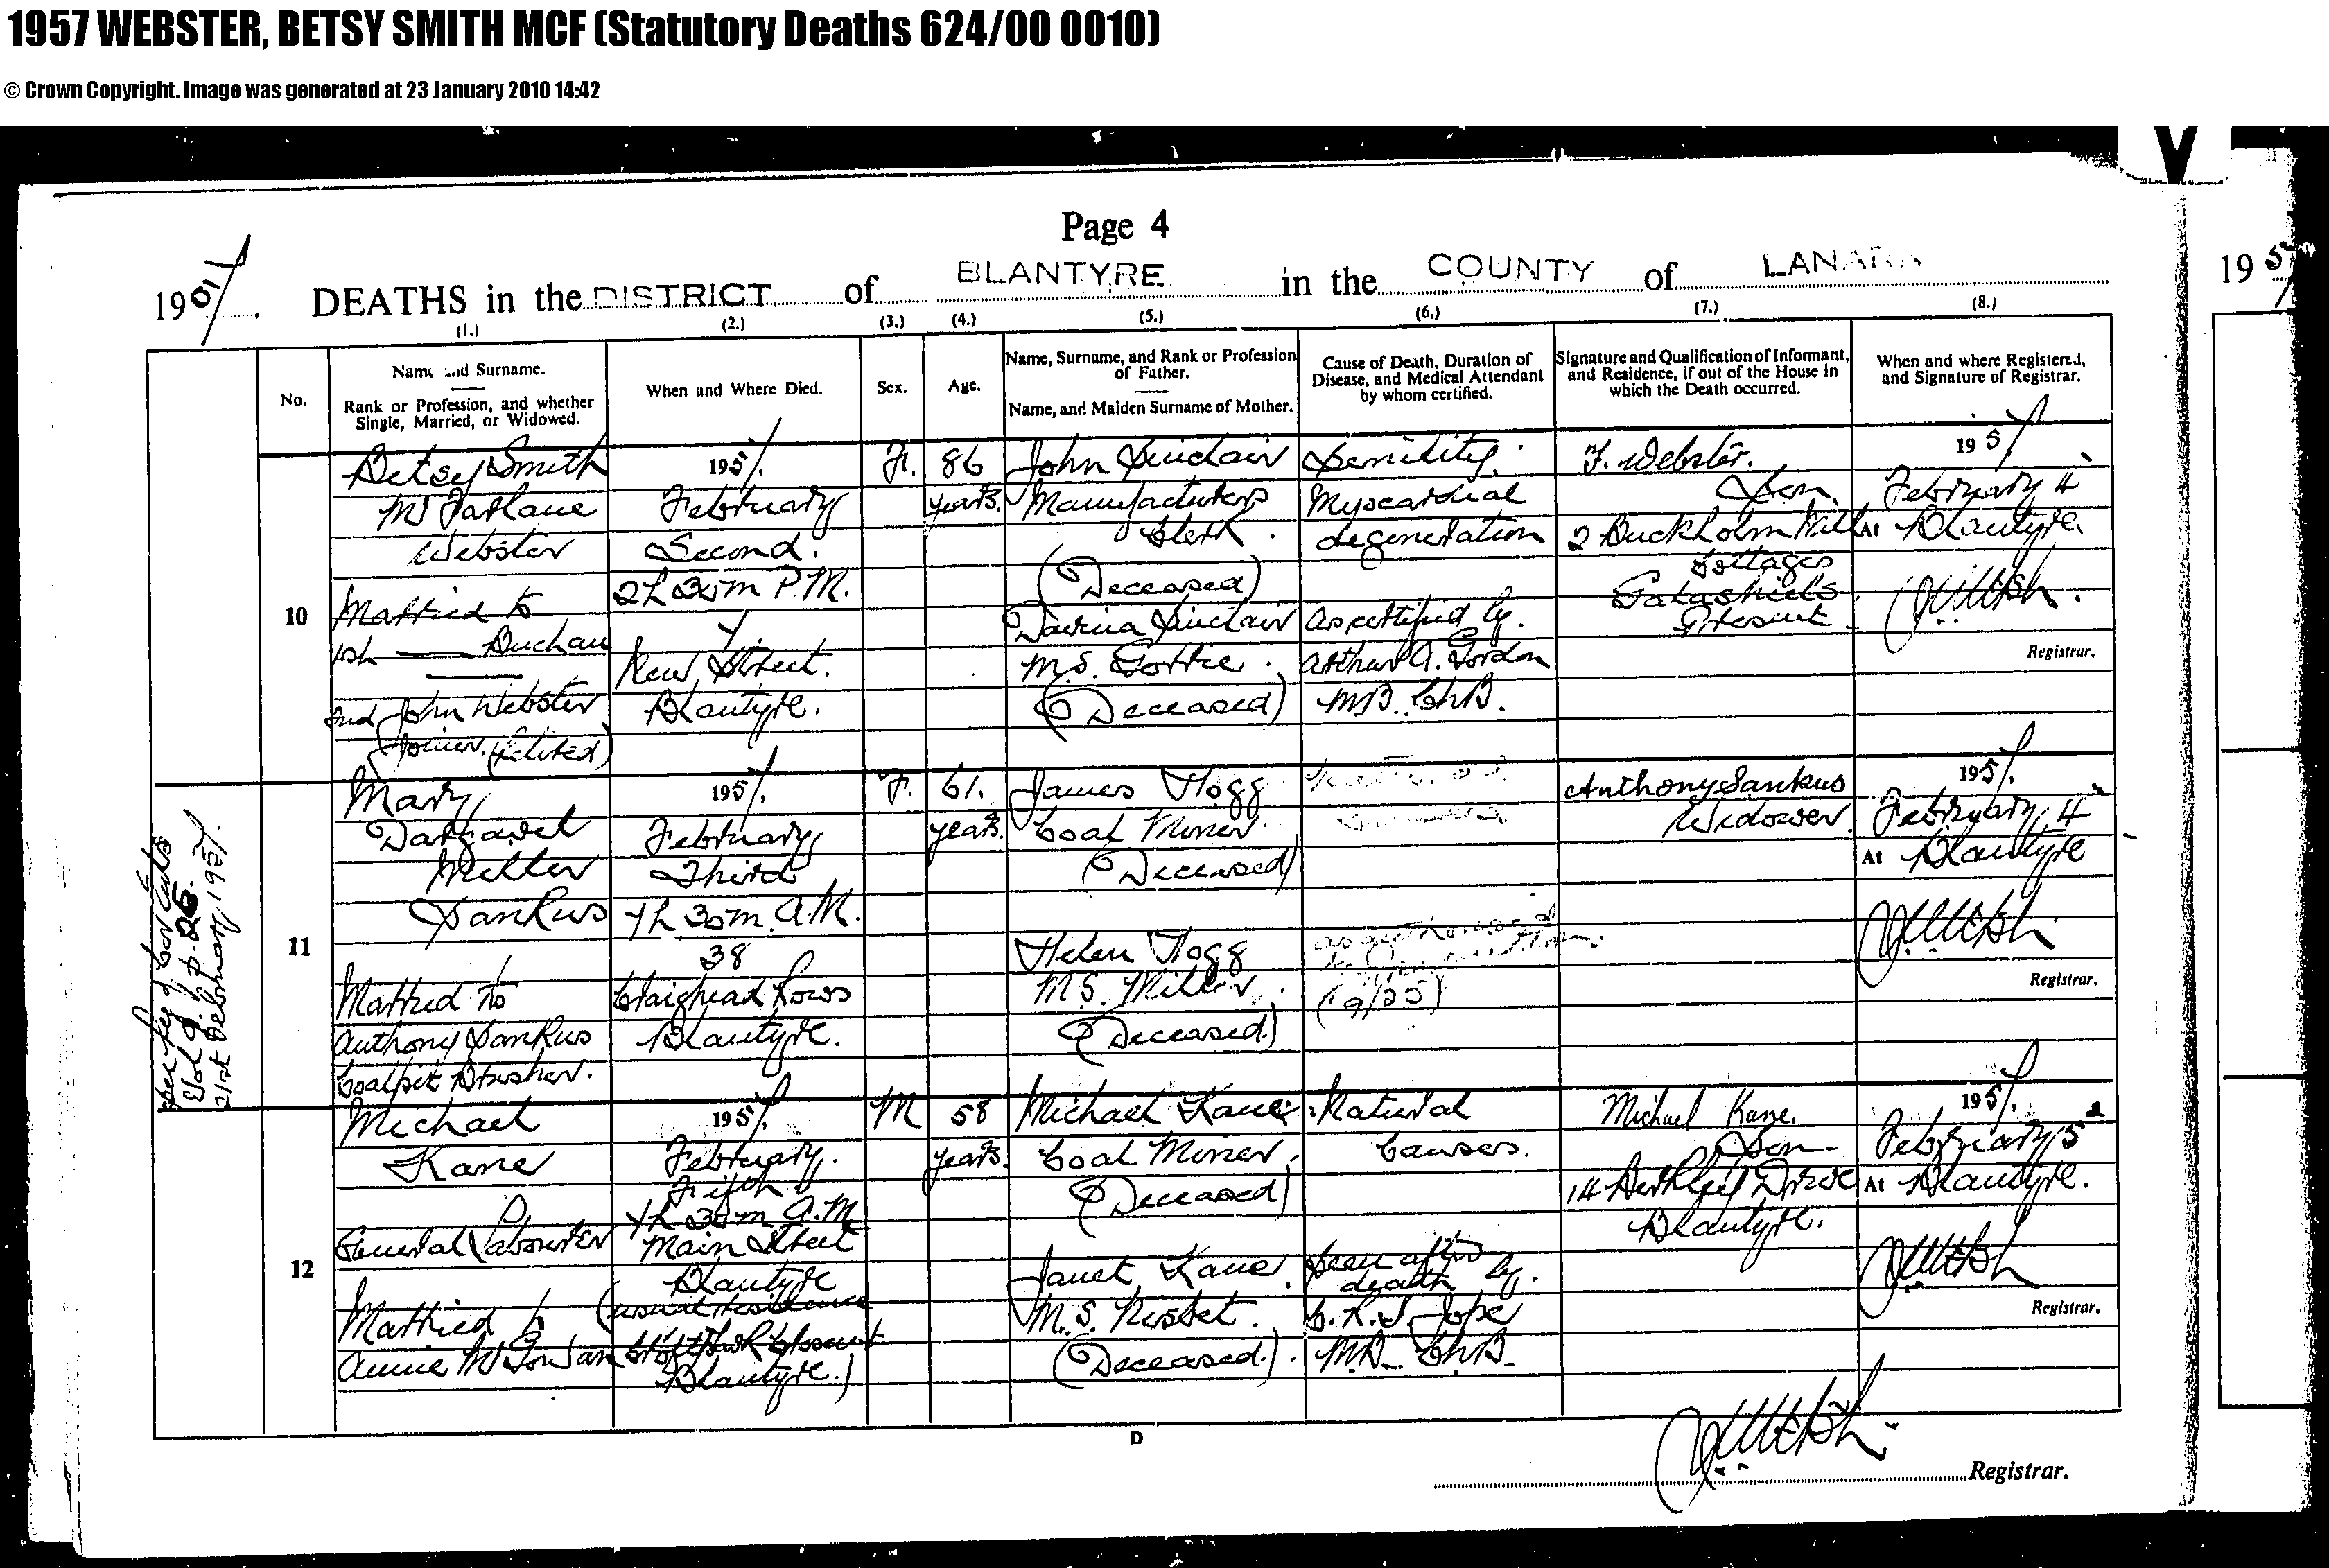 1957 WEBSTER, BETSY SMITH MCF (Statutory Deaths 624/00 0010)
© Crown Copyright. Image was generated at 23 January 2010 14:42
Page 4
1957. DEATHS in the DISTRICT of BLANTYRE in the COUNTY of LANARK
1957
(1.) (2.) (3.) (4.) (5.) (6.) (7.) (8.)
No.
Name and Surname.
Rank or Profession, and whether
Single, Married, or Widowed.
When and Where Died.
Sex.
Age.
Name, Surname, and Rank or Profession
of Father.
Name, and Maiden Surname of Mother.
Cause of Death, Duration of
Disease, and Medical Attendant
by whom certified.
Signature and Qualification of Informant,
and Residence, if out of the House in
which the Death occurred.
When and where Registered,
and Signature of Registrar.
10
Betsy Smith
McFarlane
Webster
Married to
1st —— Buchan
2nd John Webster
Joiner (Retired)
1957.
February
Second.
2h 30m P.M.
7.
New Street.
Blantyre.
F.
86
years.
John Sinclair
Manufacturers
Clerk.
(Deceased)
Davina Sinclair
M.S. Gottie.
(Deceased)
Senility.
Myocardial
degeneration
As certified by.
Arthur A. Gordon
M.B. Ch.B.
F. Webster.
Son.
2 Buckholm Mill
Cottages
Galashiels
Present
1957
February 4
At Blantyre.
Registrar.
11
Mary
Dargavel
Miller
Sankus
Married to
Anthony Sankus
Coalpit Brusher.
1957.
February
Third
7h 30m A.M.
38
Craighead Rows
Blantyre.
F.
61.
years.
James Hogg
Coal Miner.
(Deceased)
Helen Hogg
M.S. Miller.
(Deceased.)
(9/25)
Anthony Sankus
Widower.
1957.
February 4
At Blantyre
Registrar.
Vol 9. P. 25.
21st February, 1957.
12
Michael
Kane
General Labourer
Married to
Annie McGowan
1957
February.
Fifth
7h 30m A.M.
Main Street
Blantyre
(usual residence
Blantyre.)
M
58
years.
Michael Kane
Coal Miner.
(Deceased)
Janet Kane.
M.S. Nisbet.
(Deceased.)
Natural
Causes.
Seen after
death by.
C.R.S. Jope
M.B. Ch.B.
Michael Kane.
Son
14 Berkley Drive
Blantyre.
1957.
February 5
At Blantyre.
Registrar.
D
Registrar.